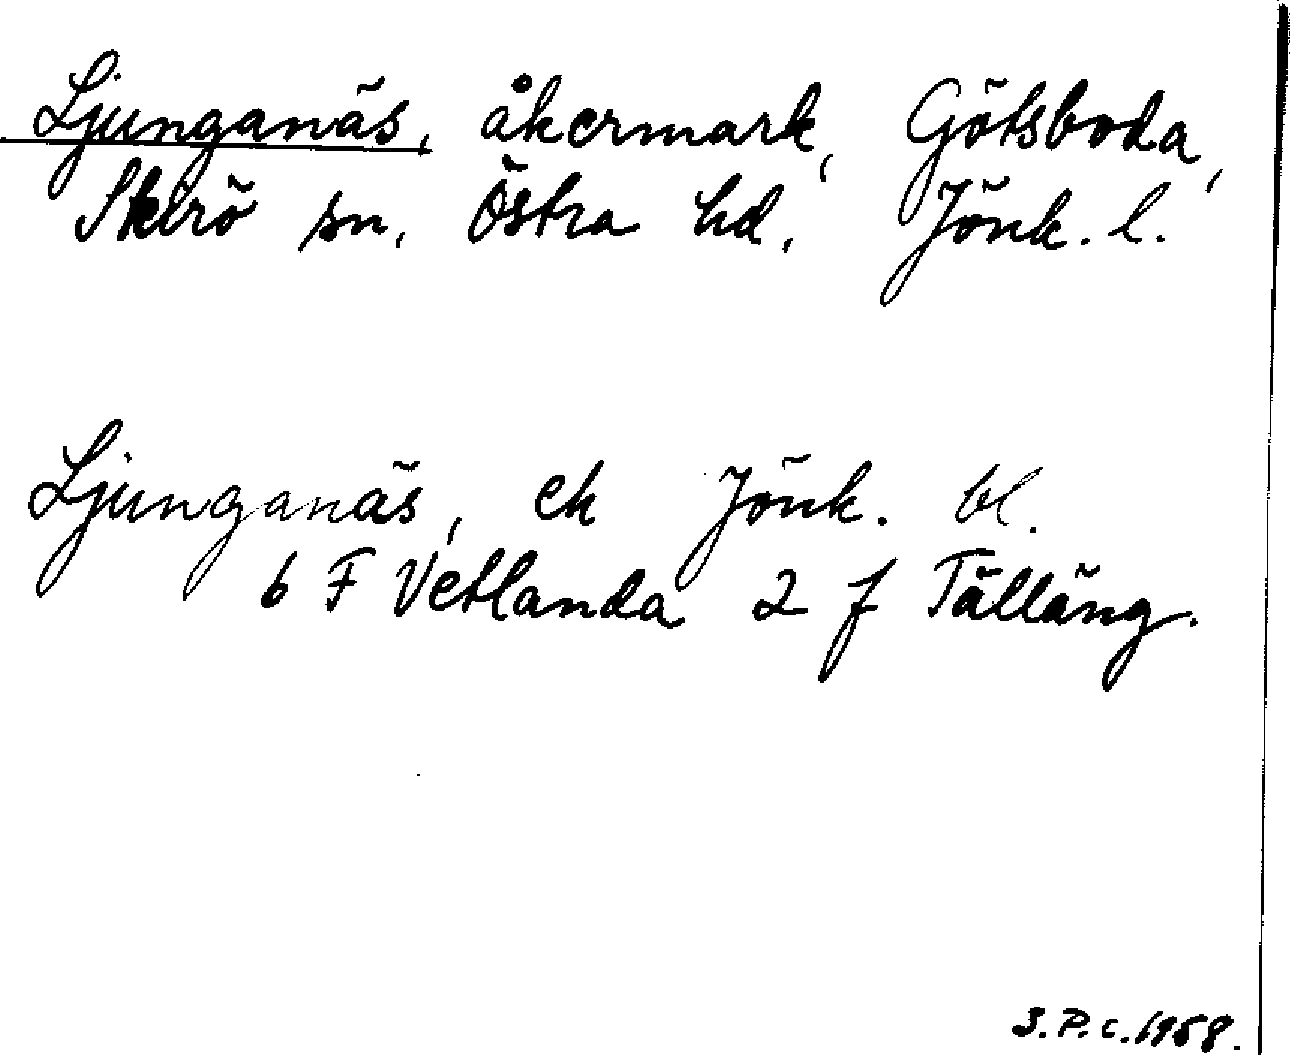 Ljunganäs, åkermark, Götsboda,
Skirö sn, Östra hd, Jönk. l.
Ljunganäs, ek Jönk. bl.
6 F Vetlanda 2 f Tälläng.
S.P.c.1958.